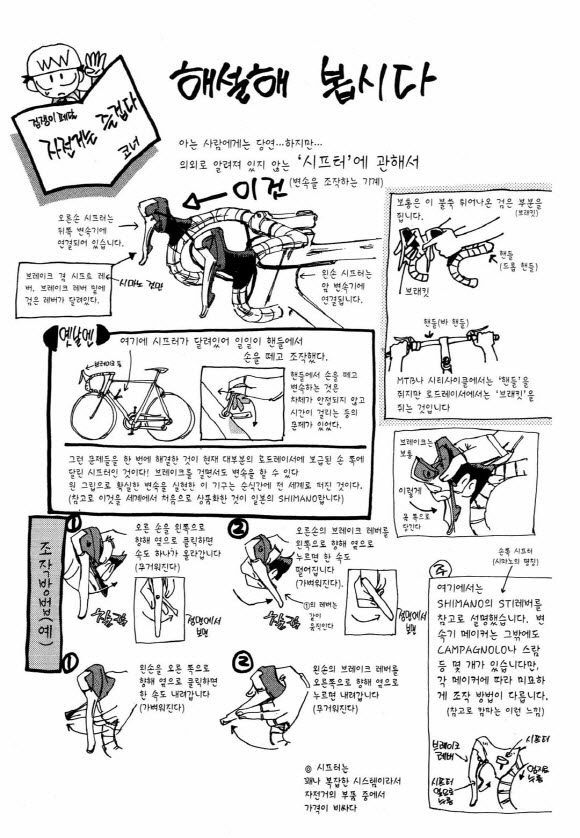 해설해 봅시다
자전거는 즐겁다
코너
아는 사람에게는 당연...하지만...
의외로 알려져 있지 않는 '시프터'에 관해서
(변속을 조작하는 기계)
이건
오른손 시프터는
뒤쪽 변속기에
연결되어 있습니다.
브레이크 겸 시프트 레
버. 브레이크 레버 밑에
검은 레버가 달려있다.
왼손 시프터는
앞 변속기에
연결됩니다.
보통은 이 불쑥 튀어나온 검은 부분을
쥡니다.
(브래킷)
핸들
(드롭 핸들)
브래킷
핸들(바 핸들)
MTB나 시티사이클에서는 '핸들'을
쥐지만 로드레이서에서는 '브래킷'을
쥐는 것입니다
옛날엔
여기에 시프터가 달려있어 일일이 핸들에서
손을 떼고 조작했다.
핸들에서 손을 떼고
변속하는 것은
차체가 안정되지 않고
시간이 걸리는 등의
문제가 있었다.
그런 문제들을 한 번에 해결한 것이 현재 대부분의 로드레이서에 보급된 손 쪽에
달린 시프터인 것이다! 브레이크를 걸면서도 변속을 할 수 있다
원 그립으로 확실한 변속을 실현한 이 기구는 순식간에 전 세계로 퍼진 것이다.
(참고로 이것을 세계에서 처음으로 상품화한 것이 일본의 SHIMANO랍니다)
브레이크는
보통
이렇게
몸 쪽으로
당긴다
조작방법(예)
①
오른 손을 왼쪽으로
향해 옆으로 클릭하면
속도 하나가 올라갑니다
(무거워진다)
정면에서
보면
②
오른손의 브레이크 레버를
왼쪽으로 향해 옆으로
누르면 한 속도
떨어집니다
(가벼워진다).
①의 레버는
같이
움직인다
정면에서
보면
①
왼손을 오른 쪽으로
향해 옆으로 클릭하면
한 속도 내려갑니다
(가벼워진다)
②
왼손의 브레이크 레버를
오른쪽으로 향해 옆으로
누르면 내려갑니다
(무거워진다)
손목 시프터
(시마노의 명칭)
주
여기에서는
SHIMANO의 STI레버를
참고로 설명했습니다. 변
속기 메이커는 그밖에도
CAMPAGNOLO나 스람
등 몇 개가 있습니다만,
각 메이커에 따라 미묘하
게 조작 방법이 다릅니다.
(참고로 캄파는 이런 느낌)
브레이크
레버
시프터
시프터
옆으로
누름
◎ 시프터는
꽤나 복잡한 시스템이라서
자전거의 부품 중에서
가격이 비싸다